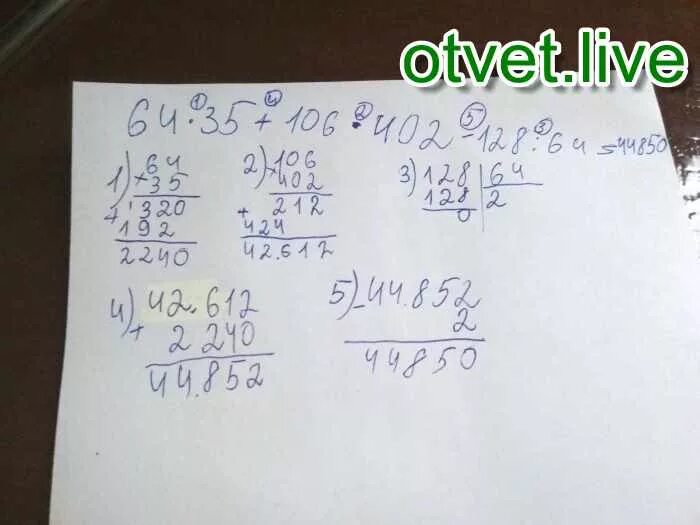 otvet.live
① ④ ② ⑤ ③
64·35+106·402-128:64=44850
1) 64
×35
+ 320
192
2240
2) 106
×402
212
+
424
42.612
3) 128 | 64
128 | 2
0
4) 42.612
+ 2 240
44.852
5) -44.852
2
44850